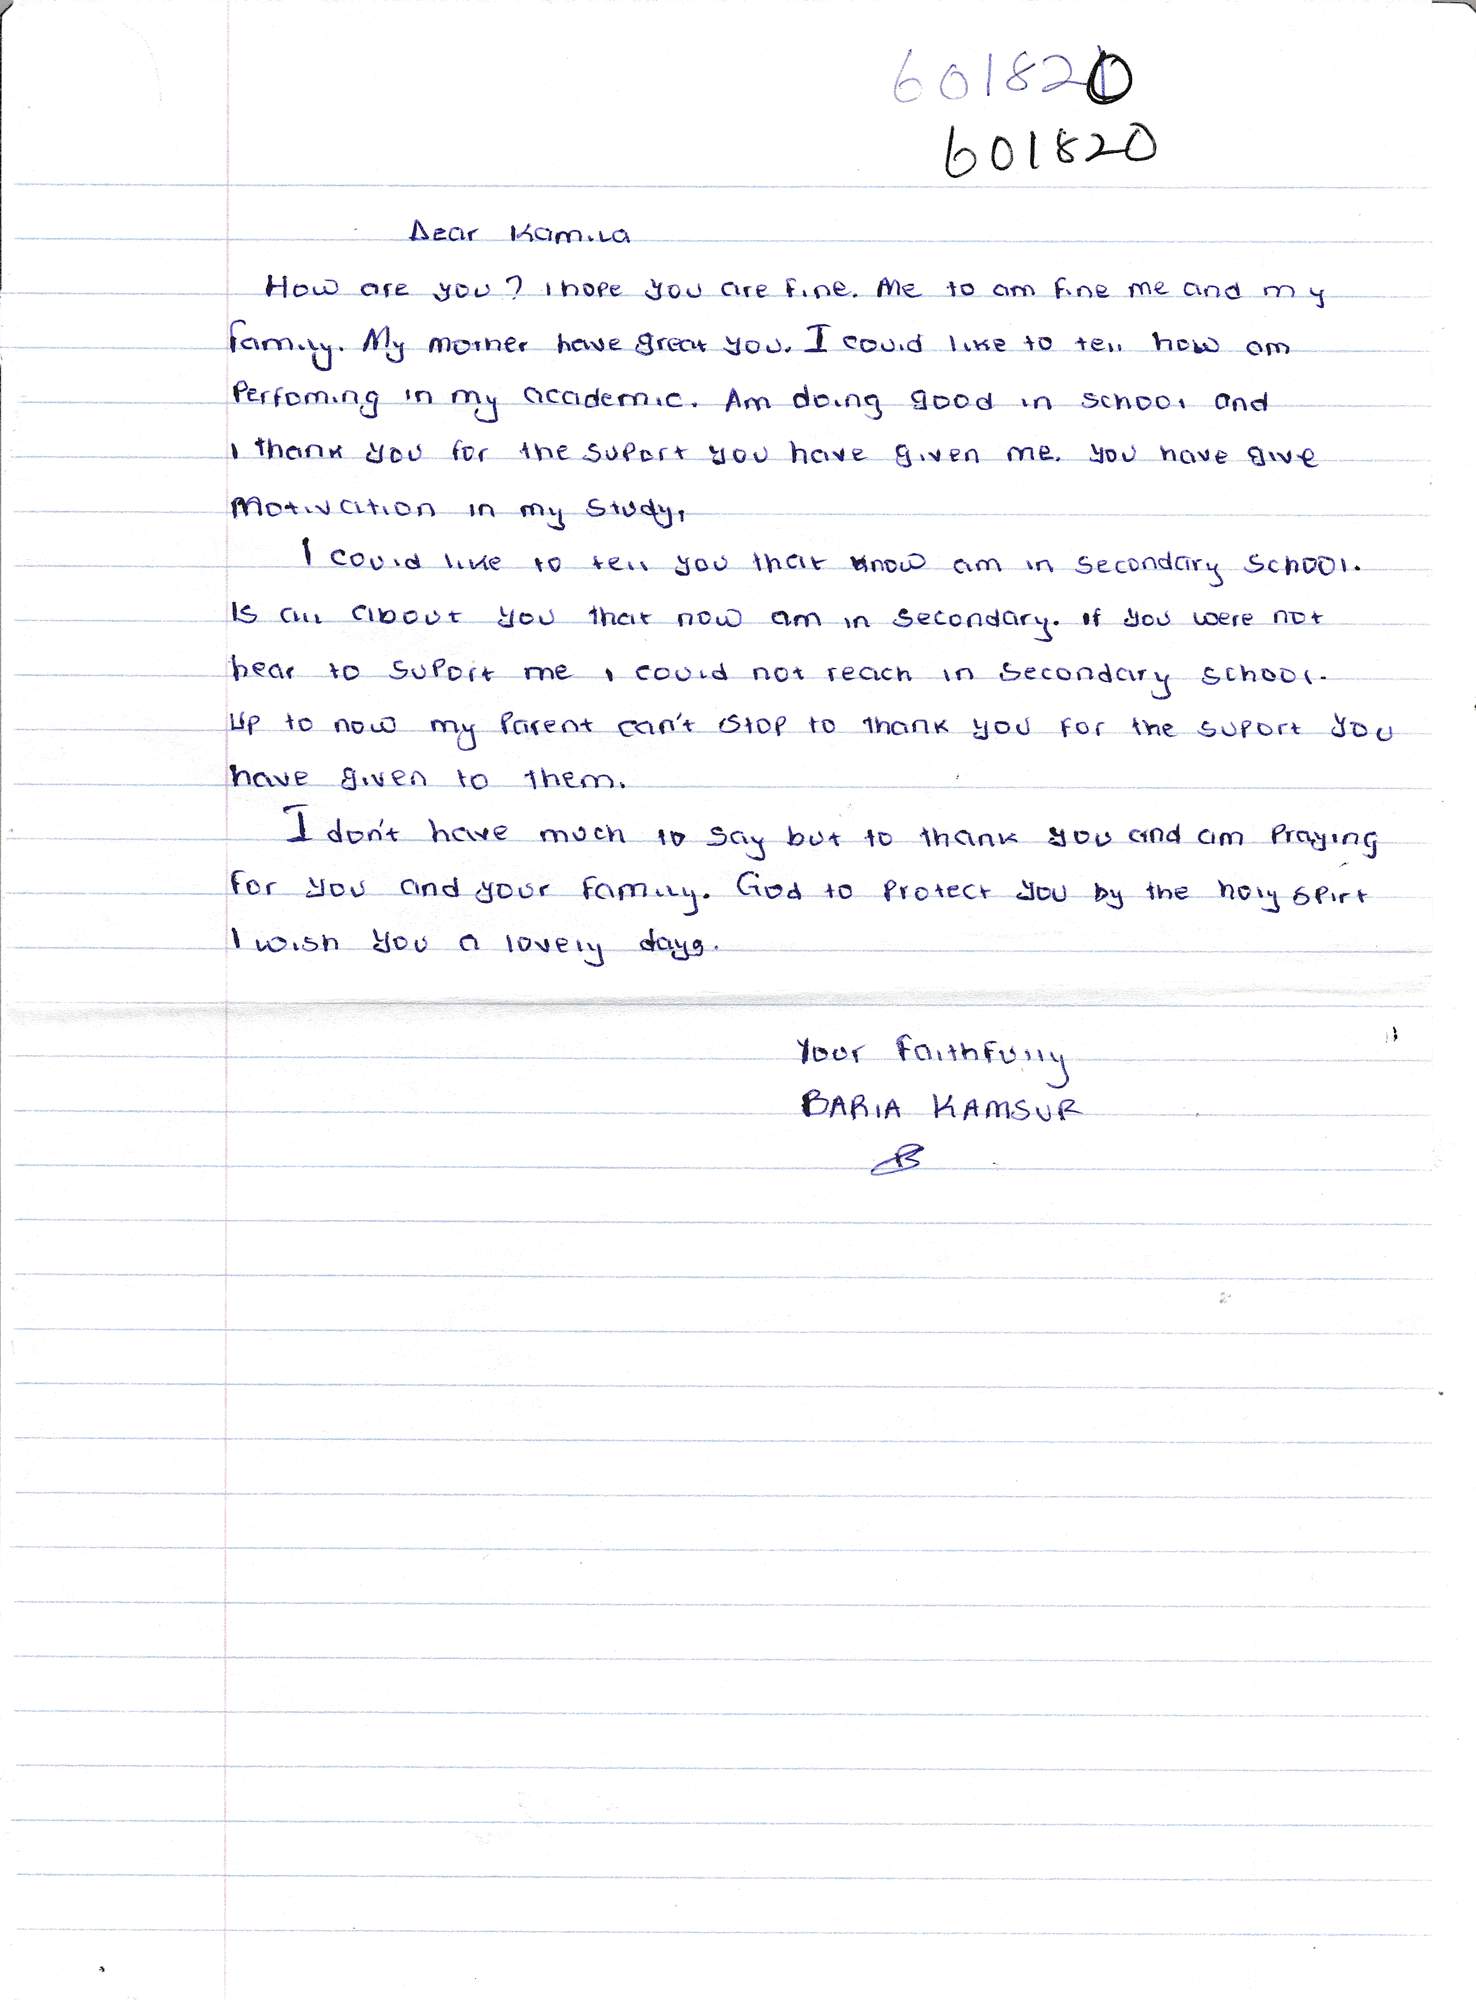 601820
601820
Dear Kamila
How are you? I hope you are fine. Me to am fine me and my
family. My mother have great you. I could like to tell how am
Perfoming in my academic. Am doing good in school and
I thank you for the suport you have given me. You have give
Motivation in my study.
I could like to tell you that know am in secondary school.
Is all about you that now am in secondary. If you were not
hear to suport me I could not reach in secondary school.
Up to now my Parent can't stop to thank you for the suport you
have given to them.
I don't have much to say but to thank you and am Praying
for you and your family. God to Protect you by the holy spirt
I wish you a lovely days.
Your Faithfully
BARIA KAMSUR
B